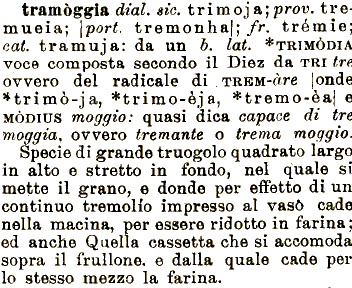 tramòggia dial. sic. trimoja; prov. tre-
mueia; |port. tremonha|; fr. trémie;
cat. tramuja: da un b. lat. *TRIMÒDIA
voce composta secondo il Diez da TRI tre
ovvero del radicale di TREM-àre |onde
*trimò-ja, *trimo-èja, *tremo-èa| e
MÒDIUS moggio: quasi dica capace di tre
moggia, ovvero tremante o trema moggio.
Specie di grande truogolo quadrato largo
in alto e stretto in fondo, nel quale si
mette il grano, e donde per effetto di un
continuo tremolío impresso al vasò cade
nella macina, per essere ridotto in farina;
ed anche Quella cassetta che si accomoda
sopra il frullone. e dalla quale cade per
lo stesso mezzo la farina.